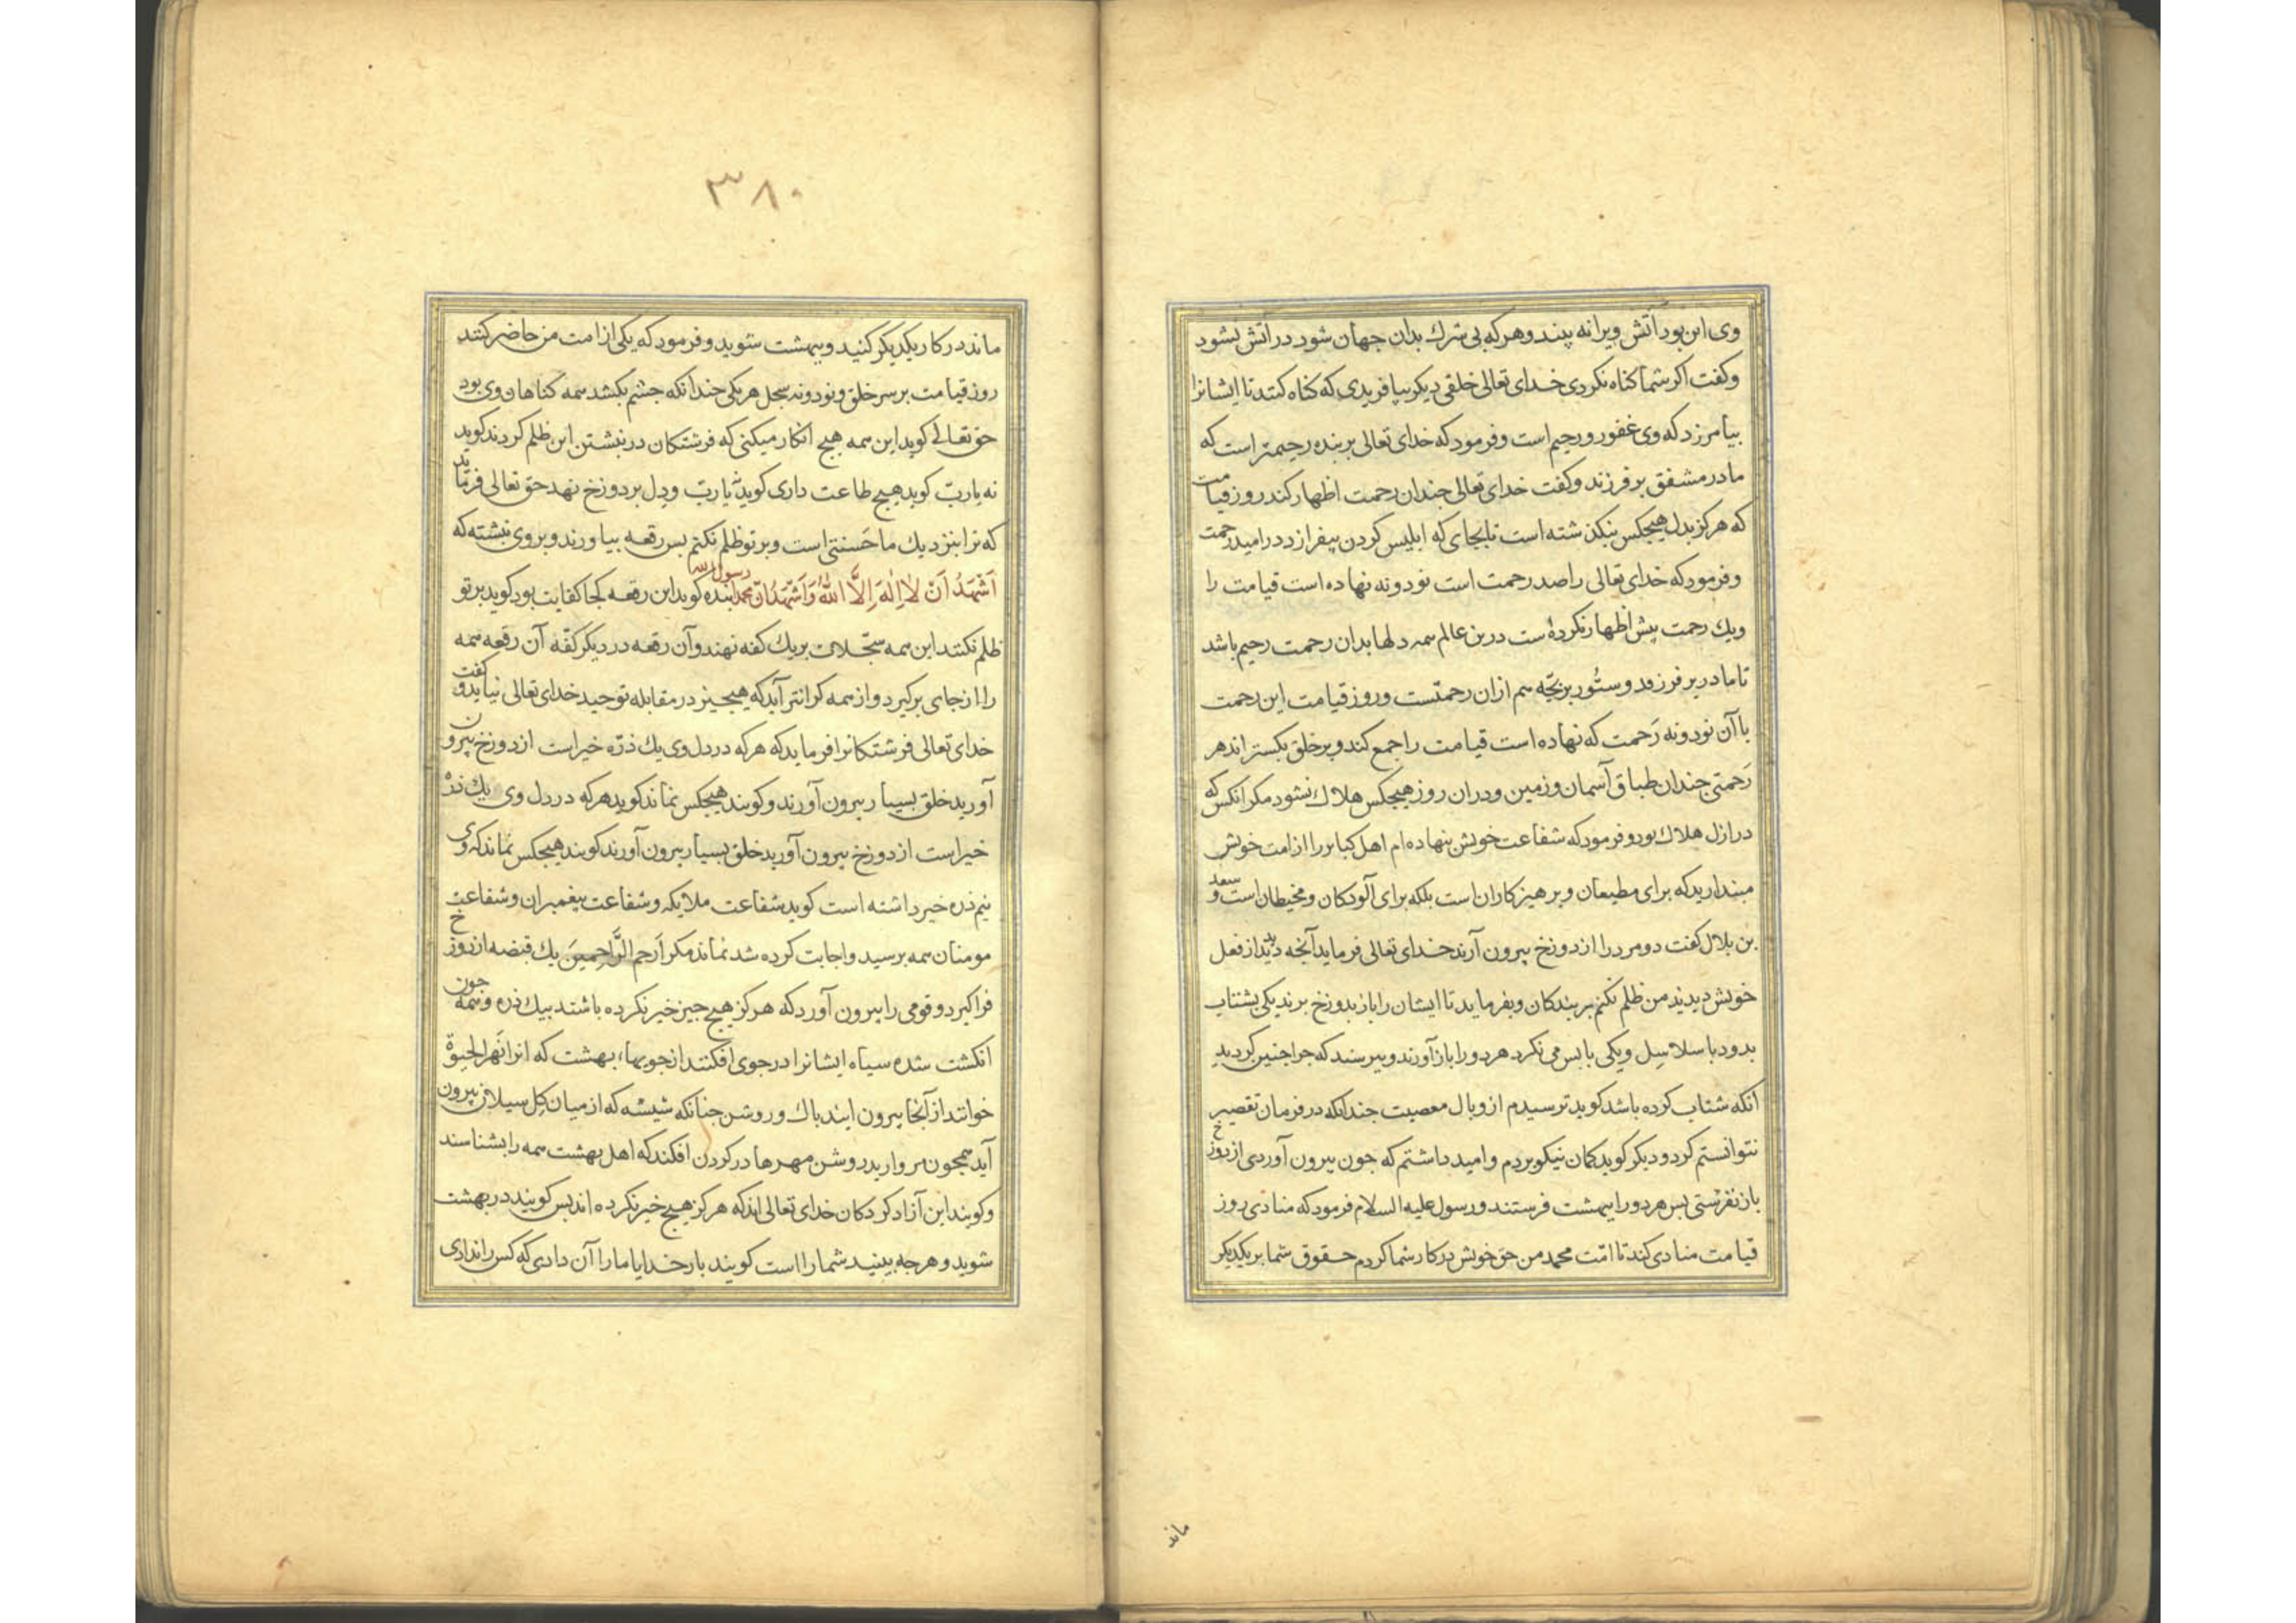 وی این بود آتش ویرا نه بیند و هرکه بی شرک بدان جهان شود در آتش نشود
وکفت اکر شما کناه نکردی خدای تعالی خلقی دیکر بیافریدی که کناه کنند تا ایشانرا
بیامرزد که وی غفور و رحیم است وفرمود که خدای تعالی بر بنده رحیمتر است که
مادر مشفق بر فرزند وکفت خدای تعالی جندان رحمت اظهار کند روز قیامت
که هرکز بدل هیجکس بنکذشته است تا بجای که ابلیس کردن بیفرازد در امید رحمت
وفرمود که خدای تعالی را صد رحمت است نود ونه نهاده است قیامت را
ویک رحمت بیش اظهار نکرده است درین عالم سمه دلها بدان رحمت رحیم باشد
تا مادر بر فرزند وستور بر بچّه سم ازان رحمتست وروز قیامت این رحمت
با آن نود ونه رَحمت که نهاده است قیامت را جمع کند وبر خلق بکستراند هر
رَحمتی جندان طباق آسمان وزمین ودران روز هیجکس هلاک نشود مکر انکس که
در ازل هلاک بود وفرمود که شفاعت خویش بنهاده ام اهل کبایر را از امت خویش
مبندارید که برای مطیعان وبرهیزکاران است بلکه برای آلودکان ومخیطان است وسعد
بن بلال کفت دو مرد را از دوزخ بیرون آرند خدای تعالی فرماید آنجه دیدید از فعل
خویش دیدید من ظلم نکنم بر بندکان وبفرماید تا ایشان را باز بدوزخ برند یکی بشتاب
بدود با سلاسل ویکی بابس می نکرد هر دو را باز آورند وبپرسند که جرا جنین کردید
انکه شتاب کرده باشد کوید ترسیدم از وبال معصیت جندانکه در فرمان تقصیر
نتوانستم کرد ودیکر کوید کمان نیکو بردم وامید داشتم که جون بیرون آوردی از دوزخ
باز نفرستی بس هر دو را ببهشت فرستند ورسول علیه السلام فرمود که منادی روز
قیامت منادی کند تا امّت محمد من حق خویش در کار شما کردم حقوق شما بر یکدیکر
ماند
۳۸۰
ماند در کار یکدیکر کنید وببهشت شوید وفرمود که یکی از امت من حاضر کنند
روز قیامت بر سر خلق ونود ونه سجل هر یکی جندانکه جشم بکشد سمه کناهان وی بود
حق تعالی کوید این سمه هیچ انکار میکنی که فرشتکان در نبشتن این ظلم کردند کوید
نه یا ربّ کوید هیچ طاعت داری کوید نه یا ربّ ودل بر دوزخ نهد حق تعالی فرماید
که ترا بنزدیک ما حَسنتی است وبر تو ظلم نکنم بس رقعه بیاورند وبروی نبشته که
اَشْهَدُ اَنْ لَا اِلٰهَ اِلَّا اللّٰهُ وَاَشْهَدُ اَنَّ محمدا رسول الله بنده کوید این رقعه کجا کفایت بود کوید بر تو
ظلم نکنند این سمه سجّلات بر یک کفه نهند وآن رقعه در دیکر کفّه آن رقعه سمه
را از جای برکیرد واز سمه کرانتر آید که هیجیز در مقابله توحید خدای تعالی نیاید وکفت
خدای تعالی فرشتکانرا فرماید که هرکه در دل وی یک ذرّه خیر است از دوزخ بیرون
آورید خلق بسیار بیرون آورند وکویند هیجکس نماند کوید هرکه در دل وی یک ذرّه
خیر است از دوزخ بیرون آورید خلق بسیار بیرون آورند کویند هیجکس نماند که وی
نیم ذره خیر داشته است کوید شفاعت ملایکه وشفاعت بیغمبران وشفاعت
مومنان سمه برسید واجابت کرده شد نماند مکر اَرحم الرَّاحِمینَ یک قبضه از دوزخ
فرا کیرد وقومی را بیرون آورد که هرکز هیچ جیز خیر نکرده باشند بیک ذره وسمه جون
انکشت شده سیاه ایشانرا در جوی افکنند از جویهاء بهشت که انرا نَهر الحیوة
خوانند از آنجا بیرون ایند باک وروشن جنانکه شیشه که از میان کل سیلان بیرون
آید سمجون مروارید روشن مهرها در کردن افکند که اهل بهشت سمه را بشناسند
وکویند این آزاد کردکان خدای تعالی اند که هرکز هیچ خیر نکرده اند بس کویند در بهشت
شوید وهرجه ببینید شما را است کویند بار خدایا ما را آن دادی که کس را ندادی